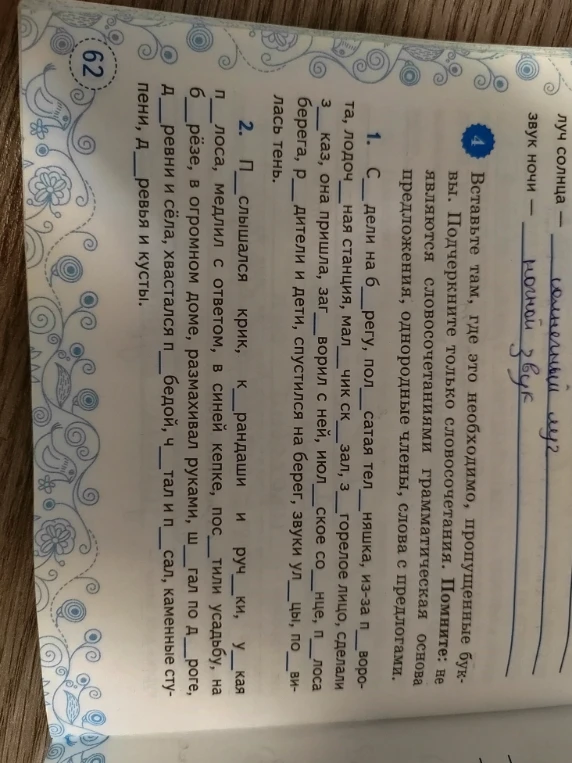 луч солнца — солнечный луч
звук ночи — ночной звук
4 Вставьте там, где это необходимо, пропущенные бук-
вы. Подчеркните только словосочетания. Помните: не
являются словосочетаниями грамматическая основа
предложения, однородные члены, слова с предлогами.
1. С__дели на б__регу, пол__сатая тел__няшка, из-за п__воро-
та, лодоч__ная станция, мал__чик ск__зал, з__горелое лицо, сделали
з__каз, она пришла, заг__ворил с ней, июл__ское со__нце, п__лоса
берега, р__дители и дети, спустился на берег, звуки ул__цы, по__ви-
лась тень.
2. П__слышался крик, к__рандаши и руч__ки, у__кая
п__лоса, медлил с ответом, в синей кепке, пос__тили усадьбу, на
б__рёзе, в огромном доме, размахивал руками, ш__гал по д__роге,
д__ревни и сёла, хвастался п__бедой, ч__тал и п__сал, каменные сту-
пени, д__ревья и кусты.
62